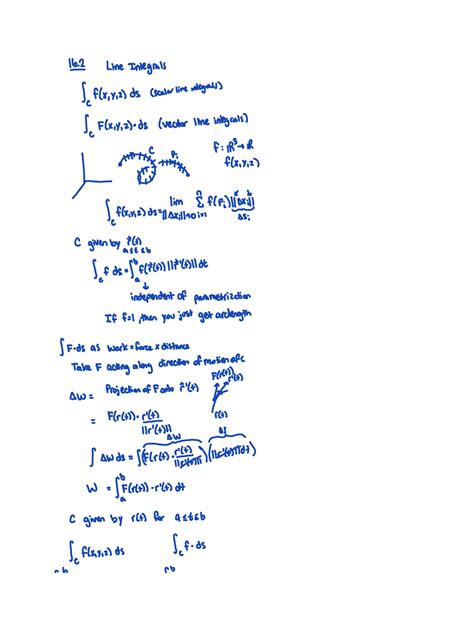 16.2 Line Integrals
∫_C f(x,y,z) ds (scalar line integrals)
∫_C F(x,y,z)·ds (vector line integrals)
C P_i f: ℝ³→ℝ
f(x,y,z)
∫_C f(x,y,z) ds = lim_{||Δx_i||→0} Σ_{i=1}^n f(P_i) ||Δx_i||
Δs_i
C given by r⃗(t)
a≤t≤b
∫_C f ds = ∫_a^b f(r⃗(t)) ||r⃗'(t)|| dt
↓
independent of parametrization
If f=1, then you just get arclength
∫ F·ds as work = force x distance
Take F acting along direction of motion of c
F(r(t)) r'(t)
ΔW = Projection of F onto r⃗'(t)
r(t)
= F(r(t)) · r'(t)/||r'(t)||
ΔW ΔS
∫ ΔW ds = ∫(F(r(t)) · r'(t)/||r'(t)||)(||r'(t)||dt)
W = ∫_a^b F(r(t)) · r'(t) dt
C given by r(t) for a≤t≤b
∫_C f(x,y,z) ds ∫_C f·ds